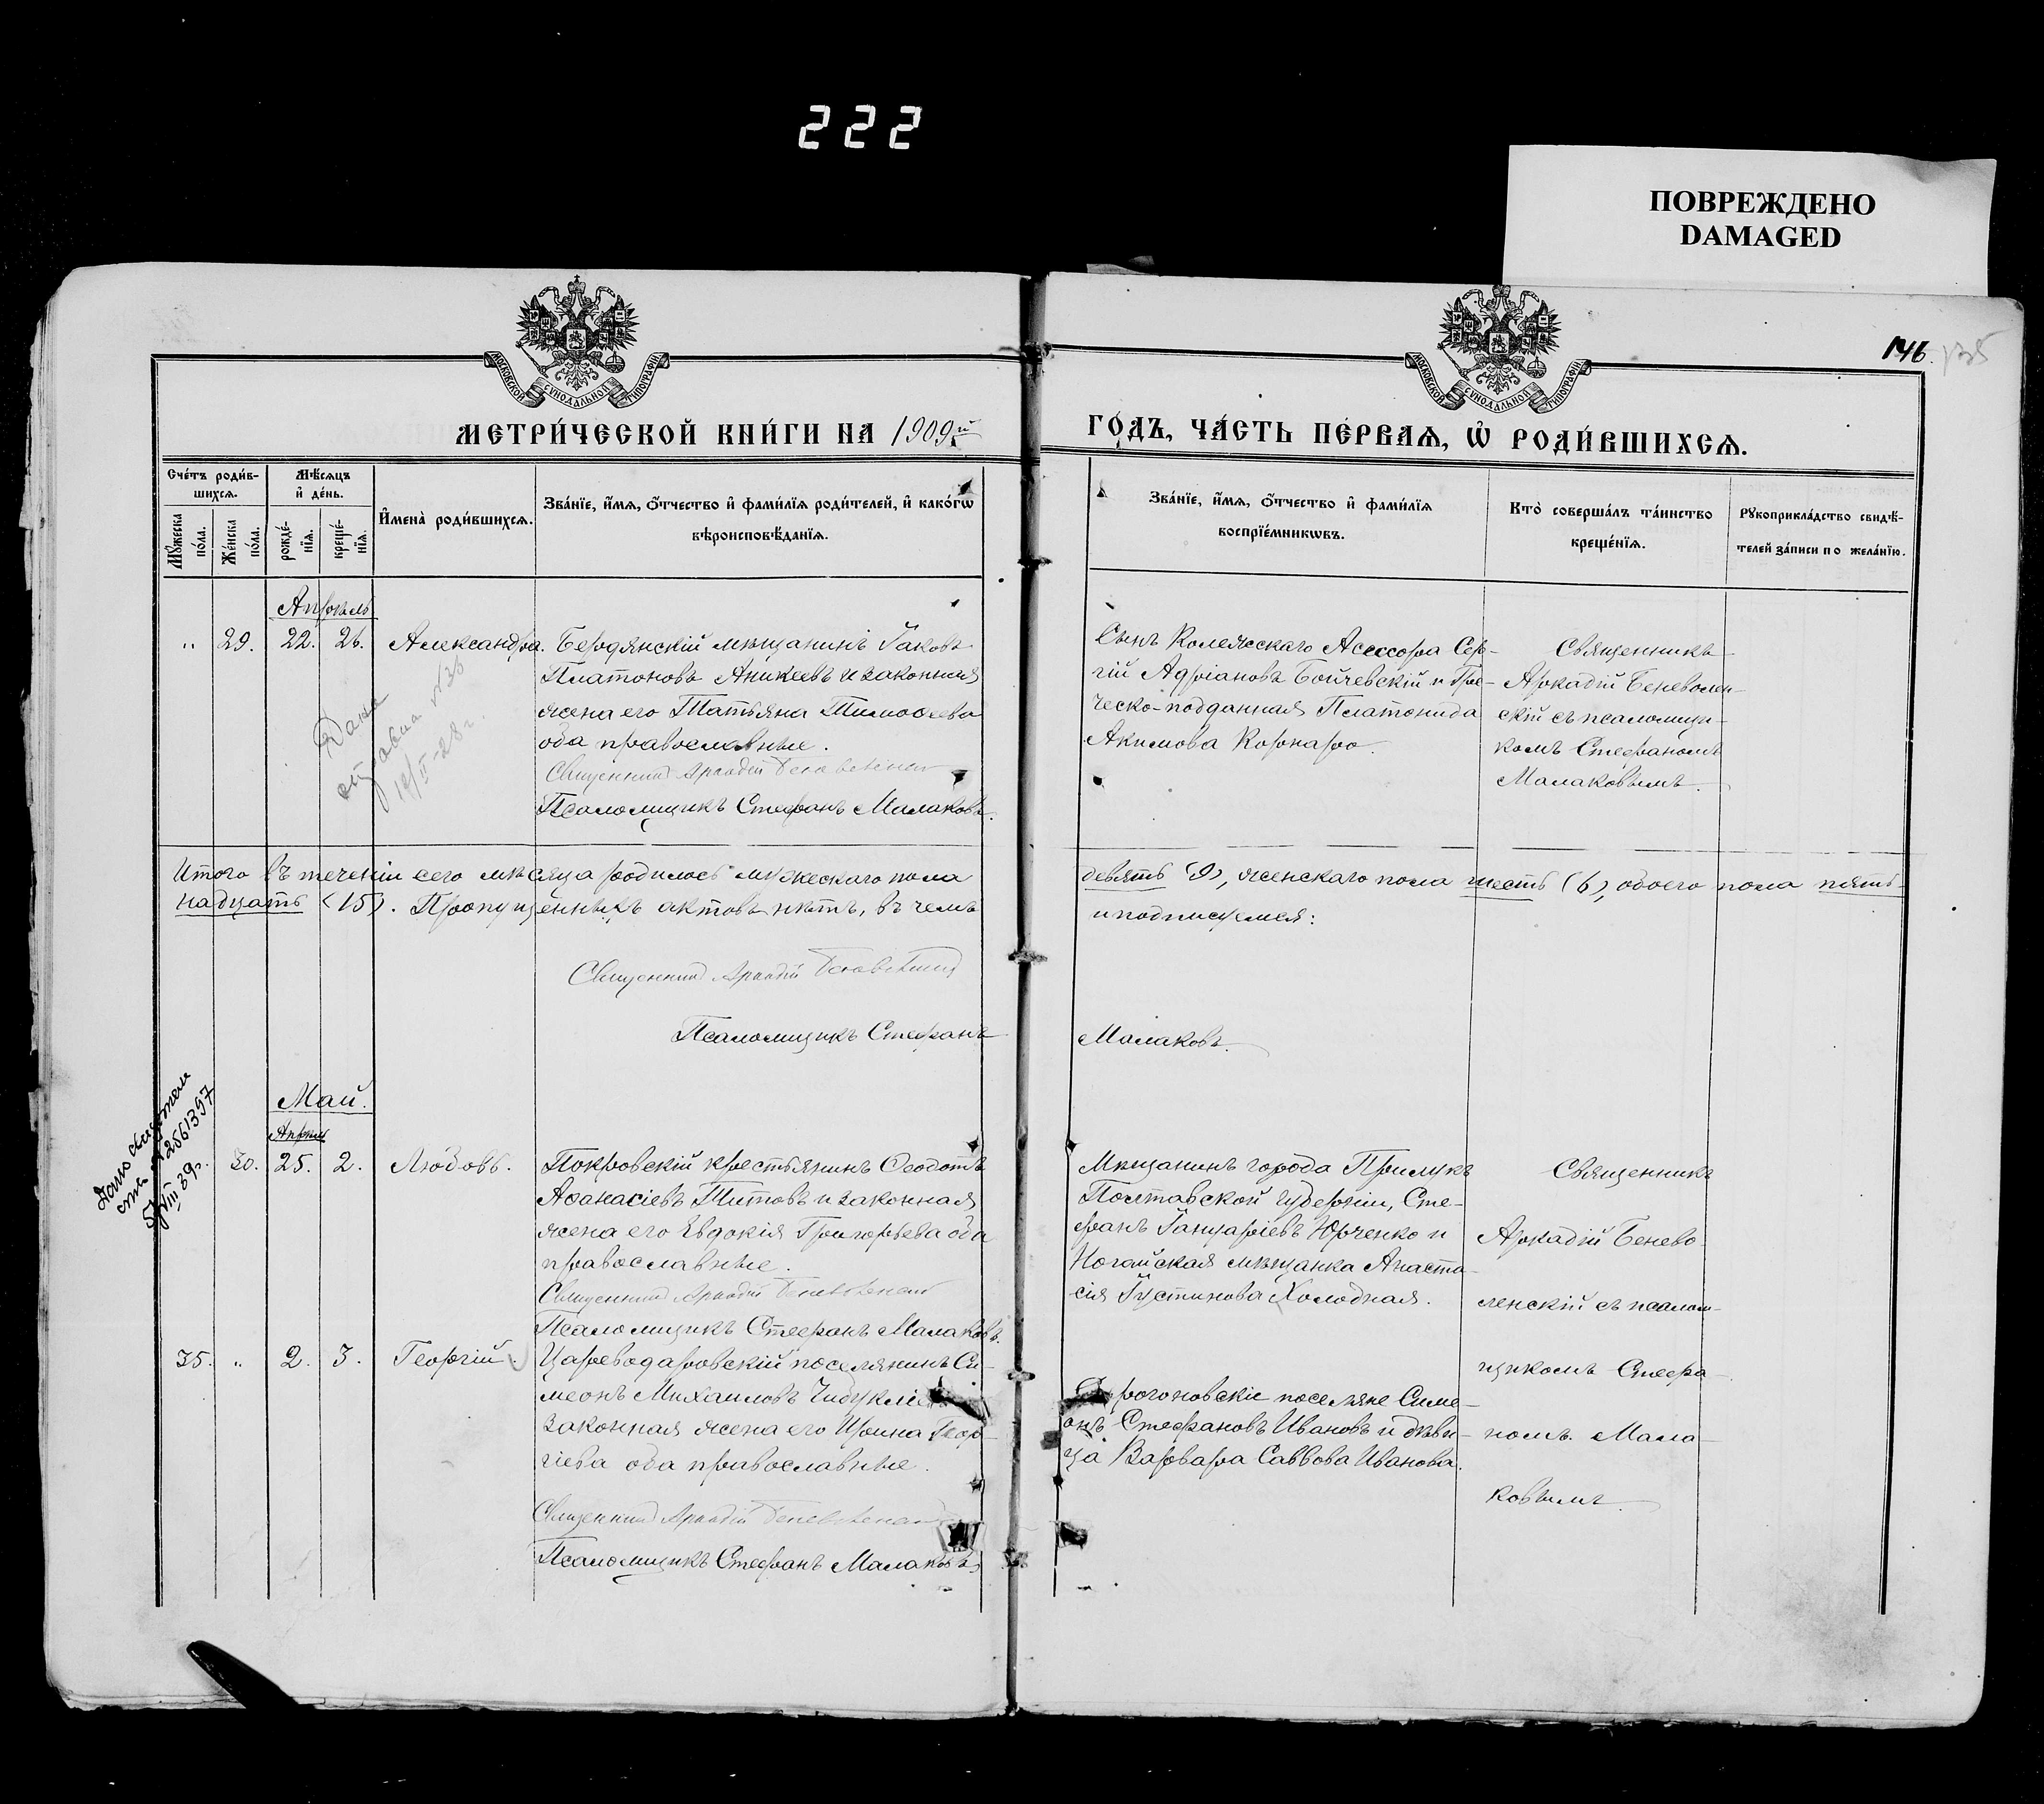 222
ПОВРЕЖДЕНО
DAMAGED
146.
135
МОСКОВСКОЙ СУНОДАЛЬНОЙ ТИПОГРАФІИ
МОСКОВСКОЙ СУНОДАЛЬНОЙ ТИПОГРАФІИ
МЕТРИ́ЧЕСКОЙ КНИ́ГИ НА 1909й
ГО́ДЪ, ЧА́СТЬ ПЕ́РВАѦ, Ѡ҆ РОДИ́ВШИХСѦ.
Сче́тъ роди́в-
шихсѧ.
Мѣ́сяцъ
и҆ де́нь.
Мꙋ́жеска по́ла.
Же́нска по́ла.
рожде́-
нїѧ.
креще́-
нїѧ.
И҆мена̀ роди́вшихсѧ.
Зва́нїе, и҆́мѧ, ѻ҆́тчество и҆ фами́лїѧ роди́телей, и҆ како́гѡ
вѣроисповѣ́данїѧ.
Зва́нїе, и҆́мѧ, ѻ҆́тчество и҆ фами́лїѧ
воспрїе́мникѡвъ.
Кто̀ соверша́лъ та́инство
креще́нїѧ.
Рꙋкоприкла́дство свидѣ́-
телей за́писи по жела́нїю.
Апрѣль
" 29. 22. 26. Александра.
Бердянскій мѣщанинъ Іаковъ
Платоновъ Аникеевъ и законная
жена его Татьяна Тимоѳеева
оба православные.
Священникъ Аркадій Беневоленскій
Псаломщикъ Стефанъ Малаковъ.
Дана
справка №36
14/II-28 г.
Сынъ Колежскаго Асессора Сер-
гій Адріановъ Бойчевскій и Гре-
ческо-подданная Платонида
Акимова Корнаро.
Священникъ
Аркадій Беневолен-
скій съ псаломщи-
комъ Стефаномъ
Малаковымъ.
Итого въ теченіи сего мѣсяца родилось мужескаго пола
девять (9), женскаго пола шесть (6), обоего пола пять-
надцать (15). Пропущенныхъ актовъ нѣтъ, въ чемъ
и подписуемся:
Священникъ Аркадій Беневоленскій
Псаломщикъ Стефанъ
Малаковъ.
Май.
Апрѣль
Дано свидетель
ство № 2561397
5/VIII 39 г.
30. 25. 2. Любовь.
Покровскій крестьянинъ Ѳеодотъ
Аѳанасіевъ Титовъ и законная
жена его Евдокія Григорьева оба
православные.
Священникъ Аркадій Беневоленскій
Псаломщикъ Стефанъ Малаковъ.
Мѣщанинъ города Прилукъ
Полтавской губерніи, Сте-
фанъ Іануаріевъ Юрченко и
Ногайская мѣщанка Анаста-
сія Іустинова Холодная.
Священникъ
Аркадій Бенево-
ленскій съ псалом-
щикомъ Стефа-
номъ Мала-
ковымъ.
35. " 2. 3. Георгій.
Цареводаровскій поселянинъ Си-
меонъ Михаиловъ
законная жена его Ирина Геор-
гіева оба православные.
Священникъ Аркадій Беневоленскій
Псаломщикъ Стефанъ Малаковъ
поселяне Симе-
онъ Стефановъ Ивановъ и дѣви-
ца Варвара Саввова Иванова.